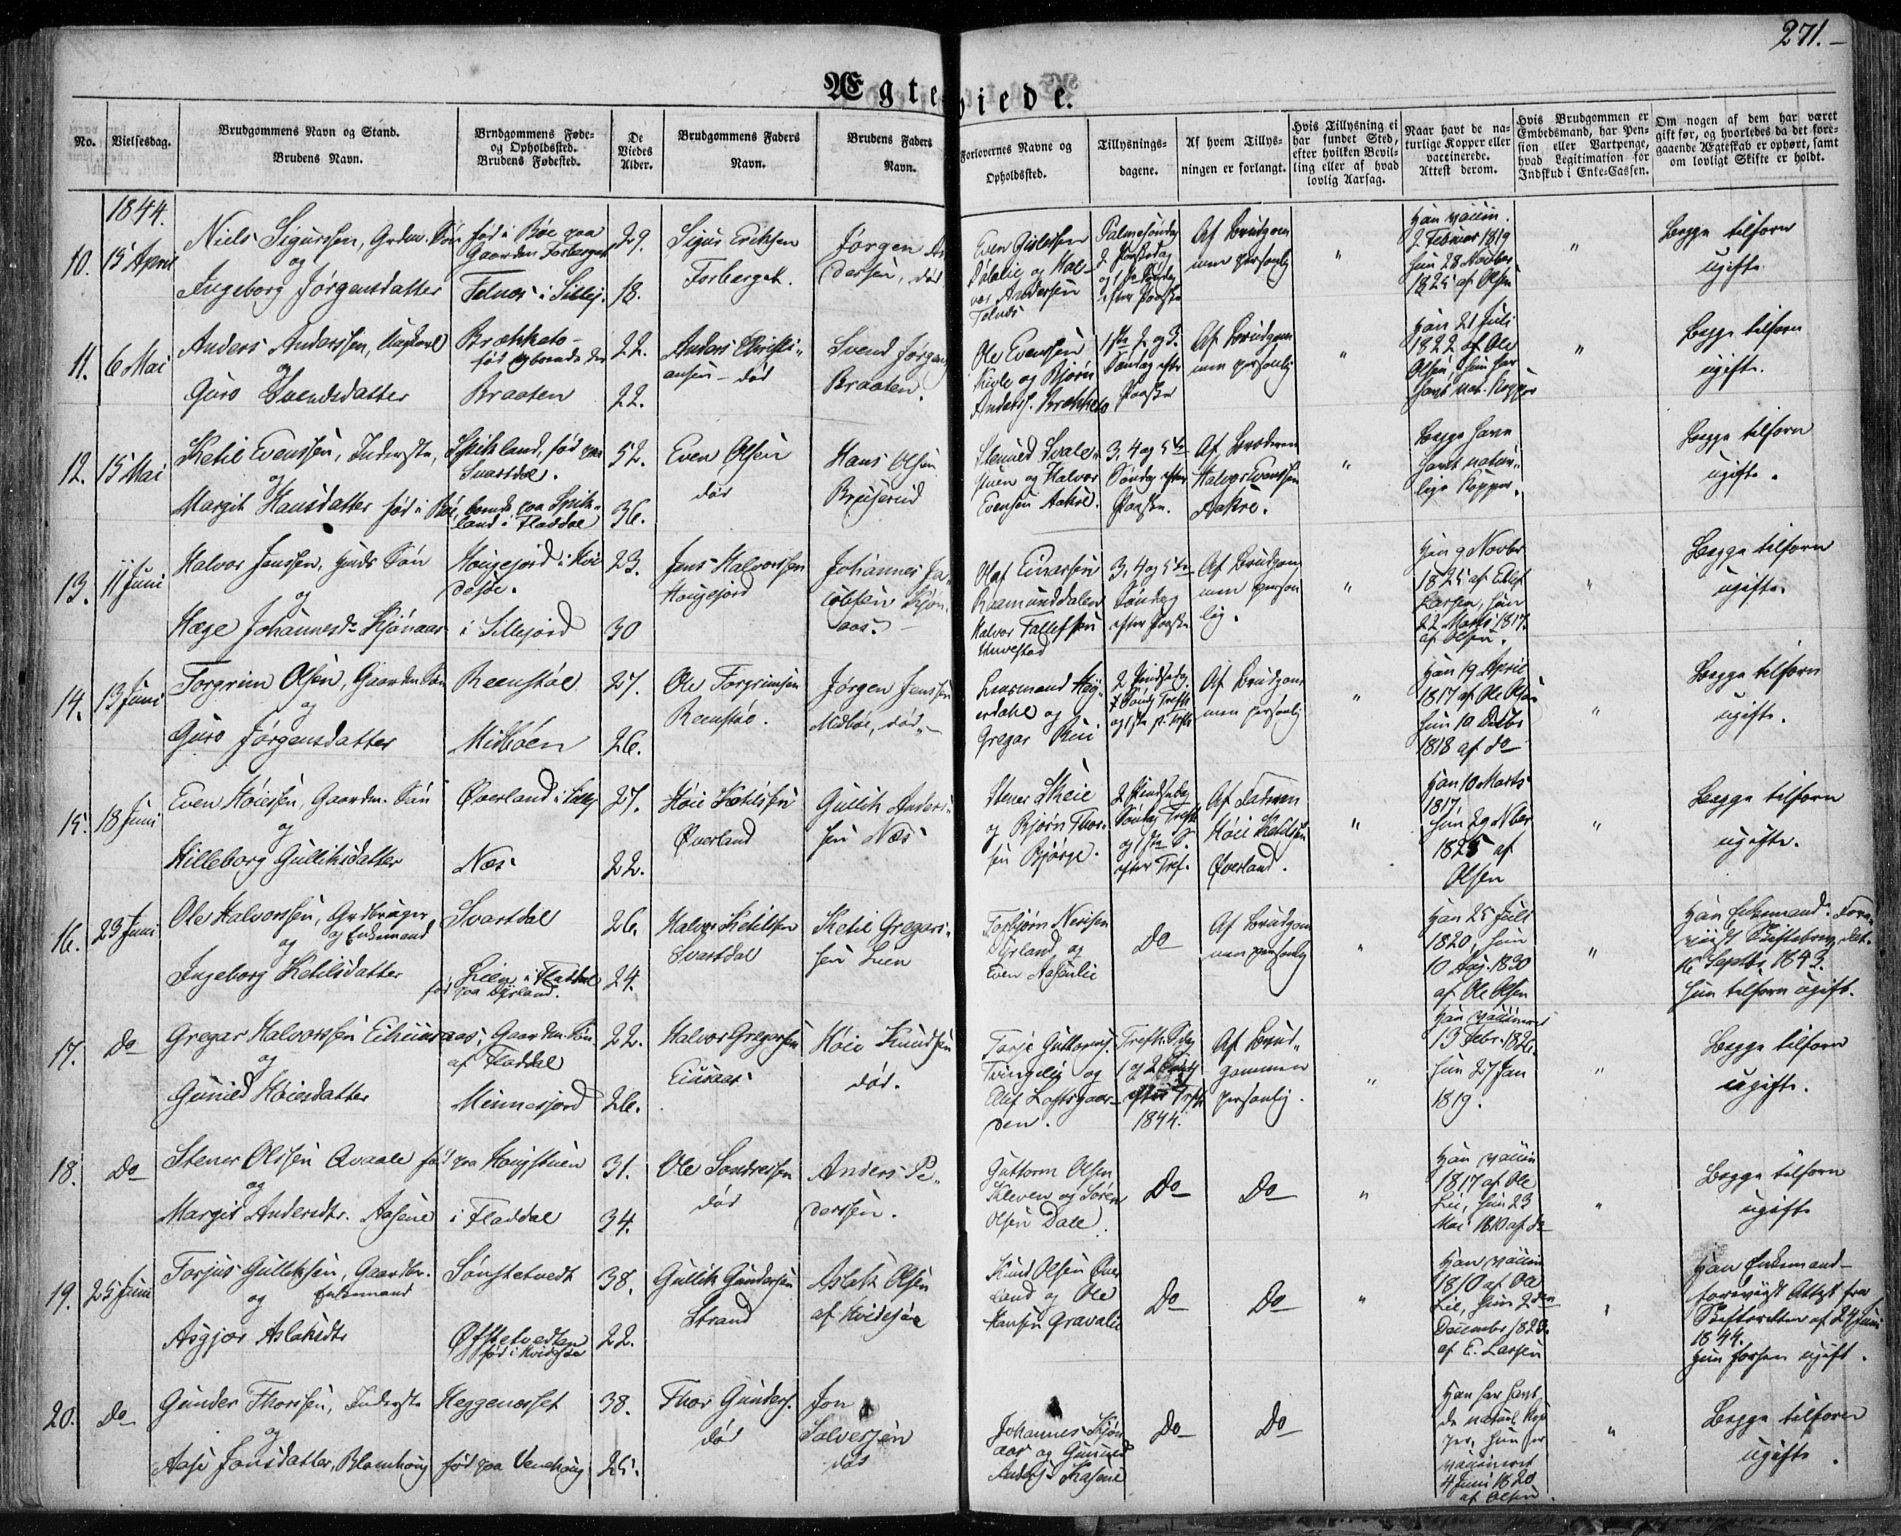 271.
Ægteviede.
No.
Vielsesdag.
Brudgommens Navn og Stand.
Brudens Navn.
Brudgommens Føde-
og Opholdssted.
Brudens Fødested.
De
Viedes
Alder.
Brudgommens Faders
Navn.
Brudens Faders
Navn.
Forlovernes Navne og
Opholdssted.
Tillysnings-
dagene.
Af hvem Tillys-
ningen er forlangt.
Hvis Tillysning ei
har fundet Sted,
efter hvilken Bevil-
ling eller af hvad
lovlig Aarsag.
Naar havt de na-
turlige Kopper eller
vaccinerede.
Attest derom.
Hvis Brudgommen er
Embedsmand, har Pen-
sion eller Vartpenge,
hvad Legitimation for
Indskud i Enke-Cassen.
Om nogen af dem har været
gift før, og hvorledes da det fore-
gaaende Ægteskab er ophørt, samt
om lovligt Skifte er holdt.
1844.
10. 15 April
Niels Sigurssen, Grdm. Søn
og
Ingeborg Jørgensdatter
fød i Bøe paa
Gaarden Forberget
Folnes i Sillej.
29.
18.
Sigur Eriksen
Forberget.
Jørgen
dersen, død
Even Gislessen
og Hal-
vor Andersen
Folnes
Palmesøndag
2 Paaskedag
og 1ste Søndag
efter Paaske
Af Brudgom
men personlig
"
Han vaccin.
2 Februar 1819
hun 28 Novber
1825 af Olsen
"
Begge tilforn
ugifte
11. 6 Mai
Anders Anderssen, Ungkarl
og
Guro Svendsdatter
Brækketo-
fød og boende der
Braaten
22.
22.
Anders Christi-
ansen - død
Svend Jørgens
Braaten.
Ole Evenssen
og Bjørn
Anderss. Brækketo
1ste 2 og 3.
Søndag efter
Paaske
Af Brudgom
men personlig
"
Han 21 Juli
1822 af Ole
Olsen, hun har
havt nat. Kopper
"
Begge tilforn
ugifte.
12. 15 Mai
Ketil Evenssen, Inderste,
og
Margit Hansdatter fød i Bøe,
Spikland, fød paa
Svartdal.
boende paa Spik-
land i Fladdal
52.
36.
Even Olsen
død
Hans Olsen
Bruserud
og Halvor
Evensen Aakre.
3, 4 og 5te
Søndag efter
Paaske.
Af Broderen
Halvor Evenssen
Aakre.
"
Begge have
havt natur-
lige Kopper.
Begge tilforn
ugifte.
13. 11 Juni
Halvor Jenssen, Søn
og
Hæge Johannesd. Kjønaas
Hougejord i Hvi
desøe.
i Sillejord
23.
30
Jens Halvorssen
Hougejord
Johannes Ja-
cobsen Kjøn-
aas.
Olaf Einarsen
Raamunddalen
Halvor Tallefsen
3, 4 og 5te
Søndag
efter Paaske
Af Brudgom
men person
lig.
"
Han 9 Novbr
1825 af Edlef
Larsen, hun
22 Marts 1817.
af Olsen.
"
Begge tilforn
ugifte.
14. 13 Juni
Torgrim Olsen, Gaardm. Søn
og
Guro Jørgensdatter
Reenstøe
Midbøen
27.
26.
Ole Torgrimsen
Reenstøe.
Jørgen Jenssen
Midbøe, død
Lensmand
og
Gregar
2 Pindsedag
Søndag Trefk
og 1ste p. Trefk
Af Brudgom
men personlig
"
Han 19 April
1817 af Ole Olsen
hun 10 Decbr
1818 af do
"
Begge tilforn
ugifte.
15. 18 Juni
Even Høiessen, Gaardm. Søn
og
Hilleborg Gulliksdatter
Øverland i Sillej
Næs
27.
22.
Høie Ketilssen
Øverland
Gullik Anders-
sen Næs
Stener Skeie
og Bjørn Thor-
sen Bjørge.
2 Pindsedag
Søndag Trefk
og 1ste S.
efter Tref.
Af Faderen
Høie Ketilssen
Øverland.
"
Han 10 Marts
1817.
hun 29 Nber
1825 af
Olsen
"
Begge tilforn
ugifte.
16. 23 Juni
Ole Halvorssen, Grdbruger
og Enkemand
og
Ingeborg Ketilsdatter
Svartdal
Lien i Fladdal
fød paa Dyrland.
26.
24.
Halvor Ketilssen
Svartdal
Ketil Gregars-
sen Lien
Torbjørn Nerisen
Dyrland og
Even Aasenlie
Do
Af Brudgom
men personlig
"
Han 25 Juli
1820, hun
10 Aug. 1830
af Ole Olsen
"
Han Enkemand. Fore-
viist Skiftebrev, dat.
16 Septbr 1843.
hun tilforn ugift.
17. Do
Gregar Halvorssen Eihuusaas, Gaardm. Søn
og
Gunild Høiesdatter
af Fladdal
Minnesjord
22.
26.
Halvor Gregarsen
Høie Knudsen
død.
Torje Guttorms.
og
Olif Loftsgaar-
den.
Trefk. Sdag
1 og 2 Søndag
efter Trefk
1844.
Af Brud-
gommen
personlig.
"
Han vaccineret
13 Febr. 1826.
hun 27 Jan
1819.
"
Begge tilforn
ugifte.
18. Do
Stener Olssen Qvaale fød paa Hougstuen
og
Margit Andersdtr. Aasene
i Fladdal
31.
34.
Ole Sondressen
død
Anders Pe-
derssen.
Guttorm Olsen
Kleven og Søren
Olsen Dale.
Do
Do
"
Han vaccin
1817 af Ole
Lie, hun 23
Mai 1810 af do
"
Begge tilforn
ugifte
19. 25 Juni
Torjus Gulliksen, Gaardbr.
og Enkemand
Asgjør Aslaksdtr
Sønstetvedt
Ofstetvedten
fød i Hvidesøe
38.
22.
Gullik Gundersen
Strand
Aslak Olsen
af Hvidesøe
Knud Olsen Øver
land og Ole
Hansen Gravalie
Do
Do
"
Han vaccin
1810 af Ole
Lie, hun 2den
December 1823.
af E. Larsen
"
Han Enkemand-
foreviist Attest fra
Skifteretten af 24 Juni
1844.
hun forhen ugift.
20. Do
Gunder Thorssen, Inderste
og
Aase Jonsdatter, Blomhoug
Heggenesset
fød paa Venehoug
38.
25.
Thor Gunders.
død
Jon
Salversen
død
Johannes Kjøn
aas og Gunuld
Anders. Aasene
Do
Do
Han har havt
de naturl. Kop
per, hun er
vaccineret
4 Juni 1820
af Olsen.
"
Begge tilforn
ugifte.